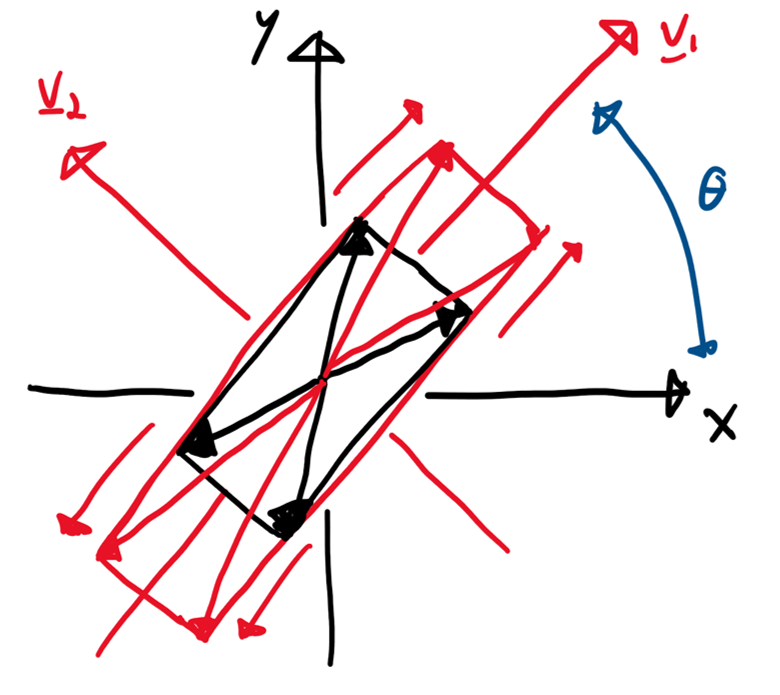 y
v₁
v₂
θ
x